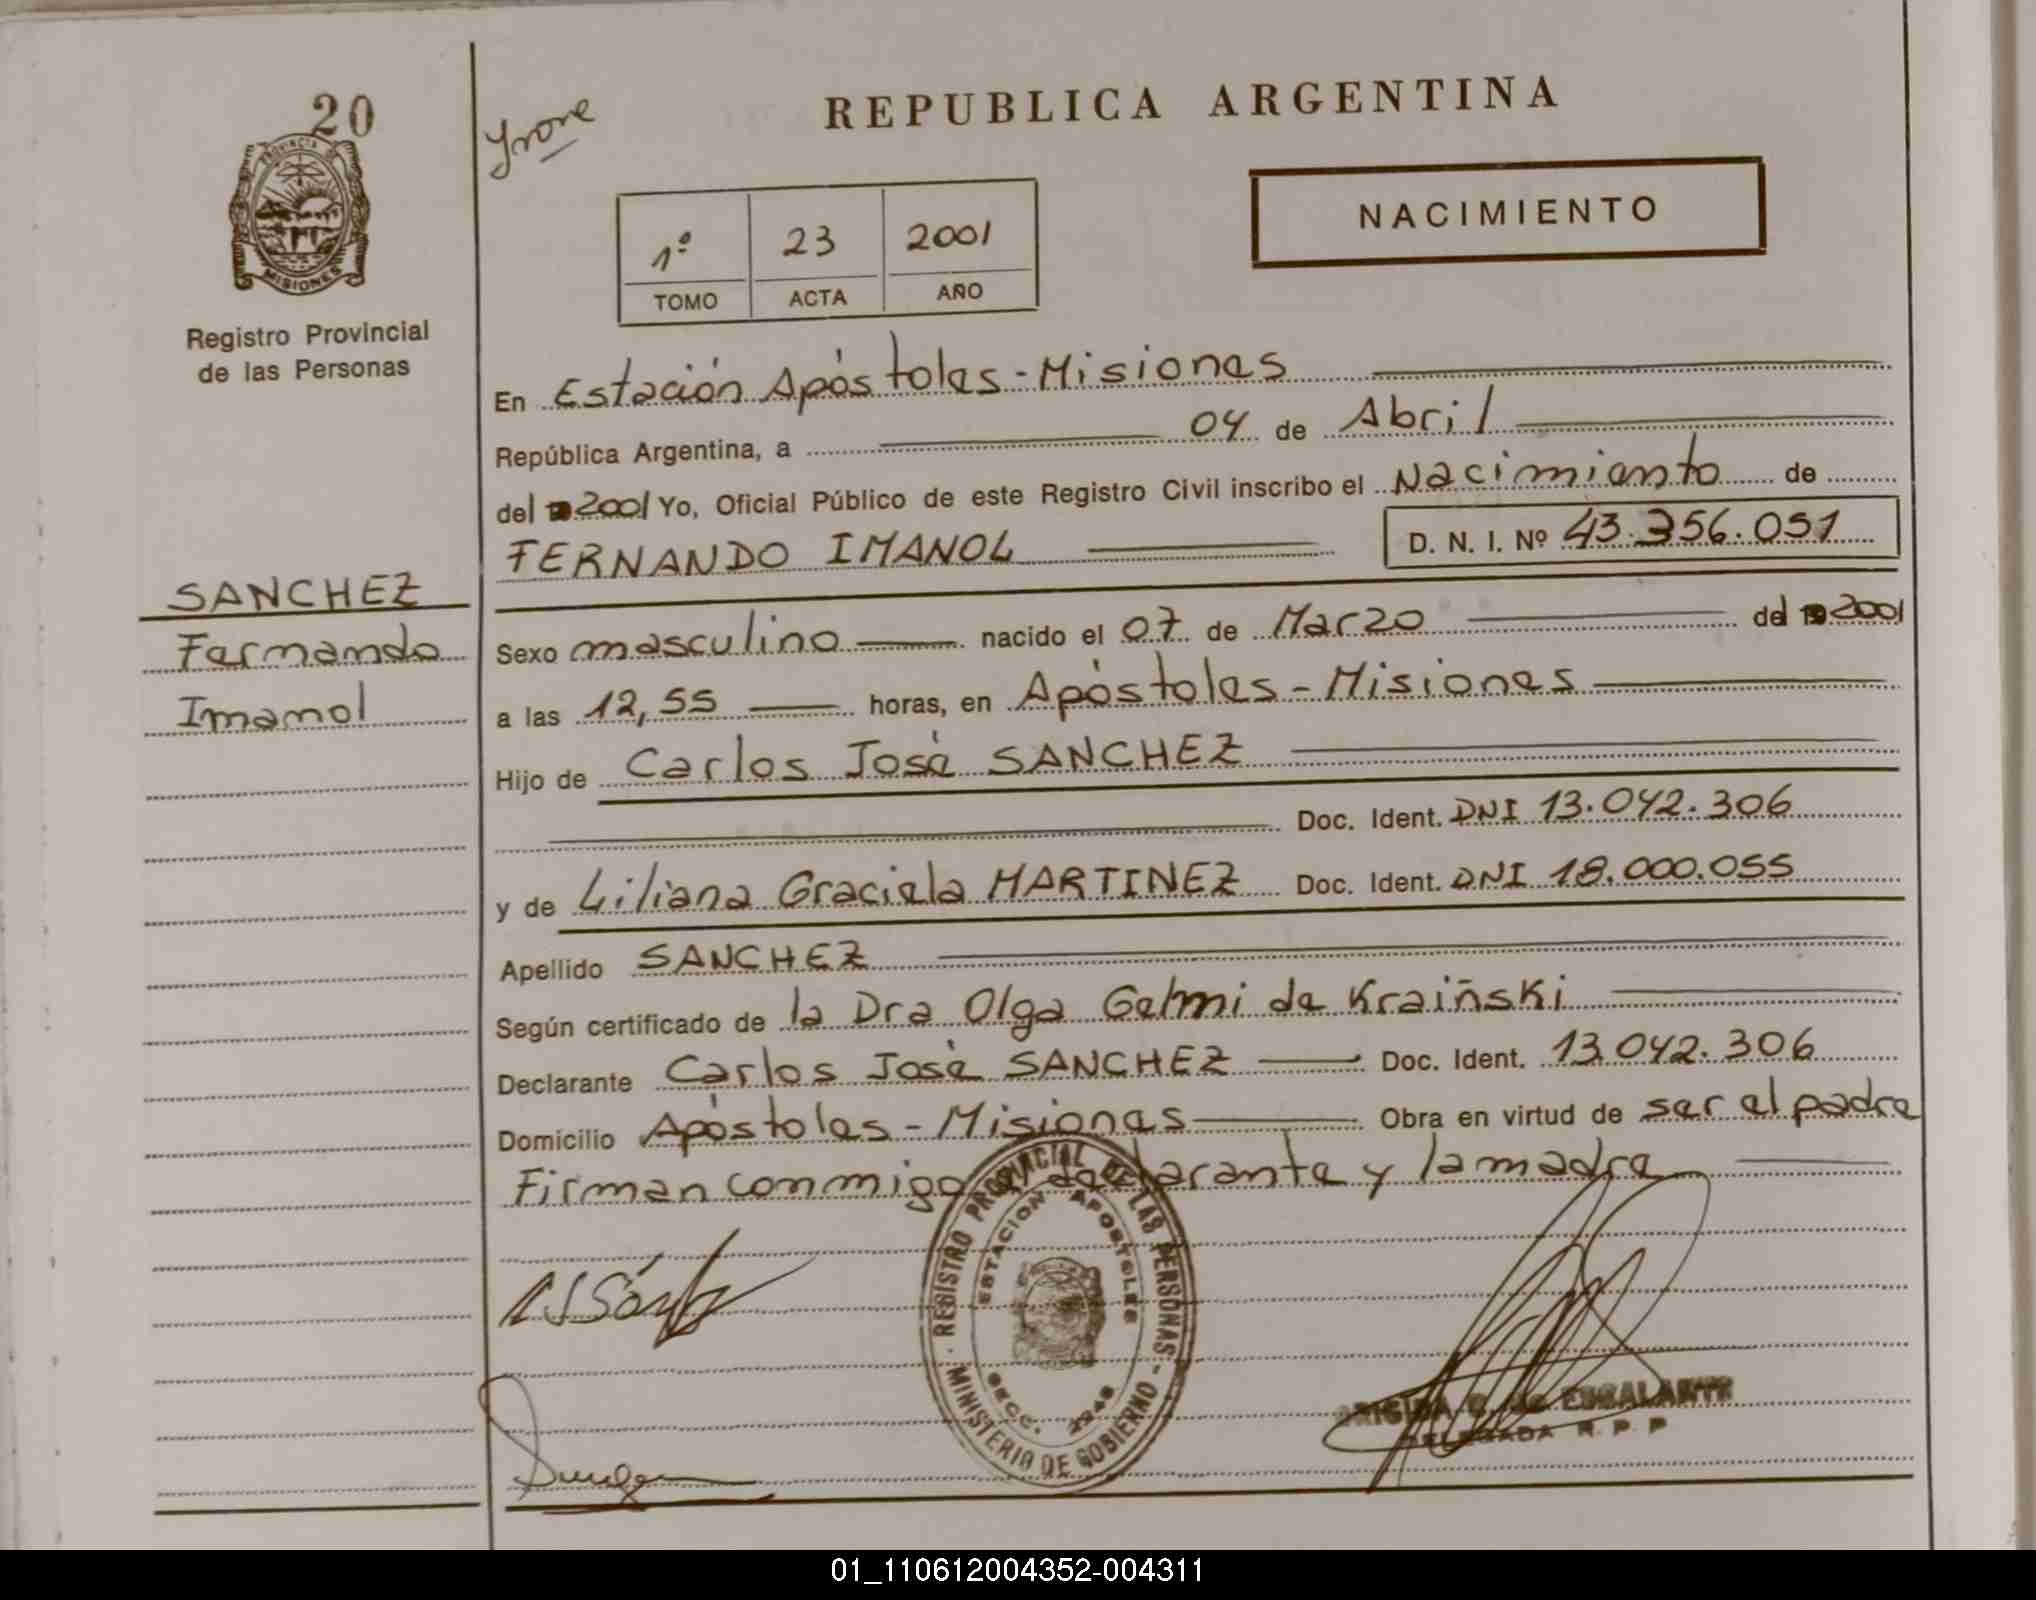 20
PROVINCIA DE
MISIONES
Registro Provincial
de las Personas
SANCHEZ
Fernando
Imanol
Ivone
REPUBLICA ARGENTINA
NACIMIENTO
1º 23 2001
TOMO ACTA AÑO
En Estación Apóstoles - Misiones
República Argentina, a 04 de Abril
del 2001 Yo, Oficial Público de este Registro Civil inscribo el Nacimiento de
FERNANDO IMANOL D. N. I. Nº 43.356.051
Sexo masculino nacido el 07 de Marzo del 2001
a las 12,55 horas, en Apóstoles - Misiones
Hijo de Carlos José SANCHEZ
Doc. Ident. DNI 13.042.306
y de Liliana Graciela MARTINEZ Doc. Ident. DNI 18.000.055
Apellido SANCHEZ
Según certificado de la Dra Olga Gelmi de Kraiñski
Declarante Carlos José SANCHEZ Doc. Ident. 13.042.306
Domicilio Apóstoles - Misiones Obra en virtud de ser el padre
Firman conmigo el declarante y la madre
REGISTRO PROVINCIAL DE LAS PERSONAS - MINISTERIO DE GOBIERNO -
ESTACION APOSTOLES
SECC. 1946
DELEGADA R. P. P
01_110612004352-004311